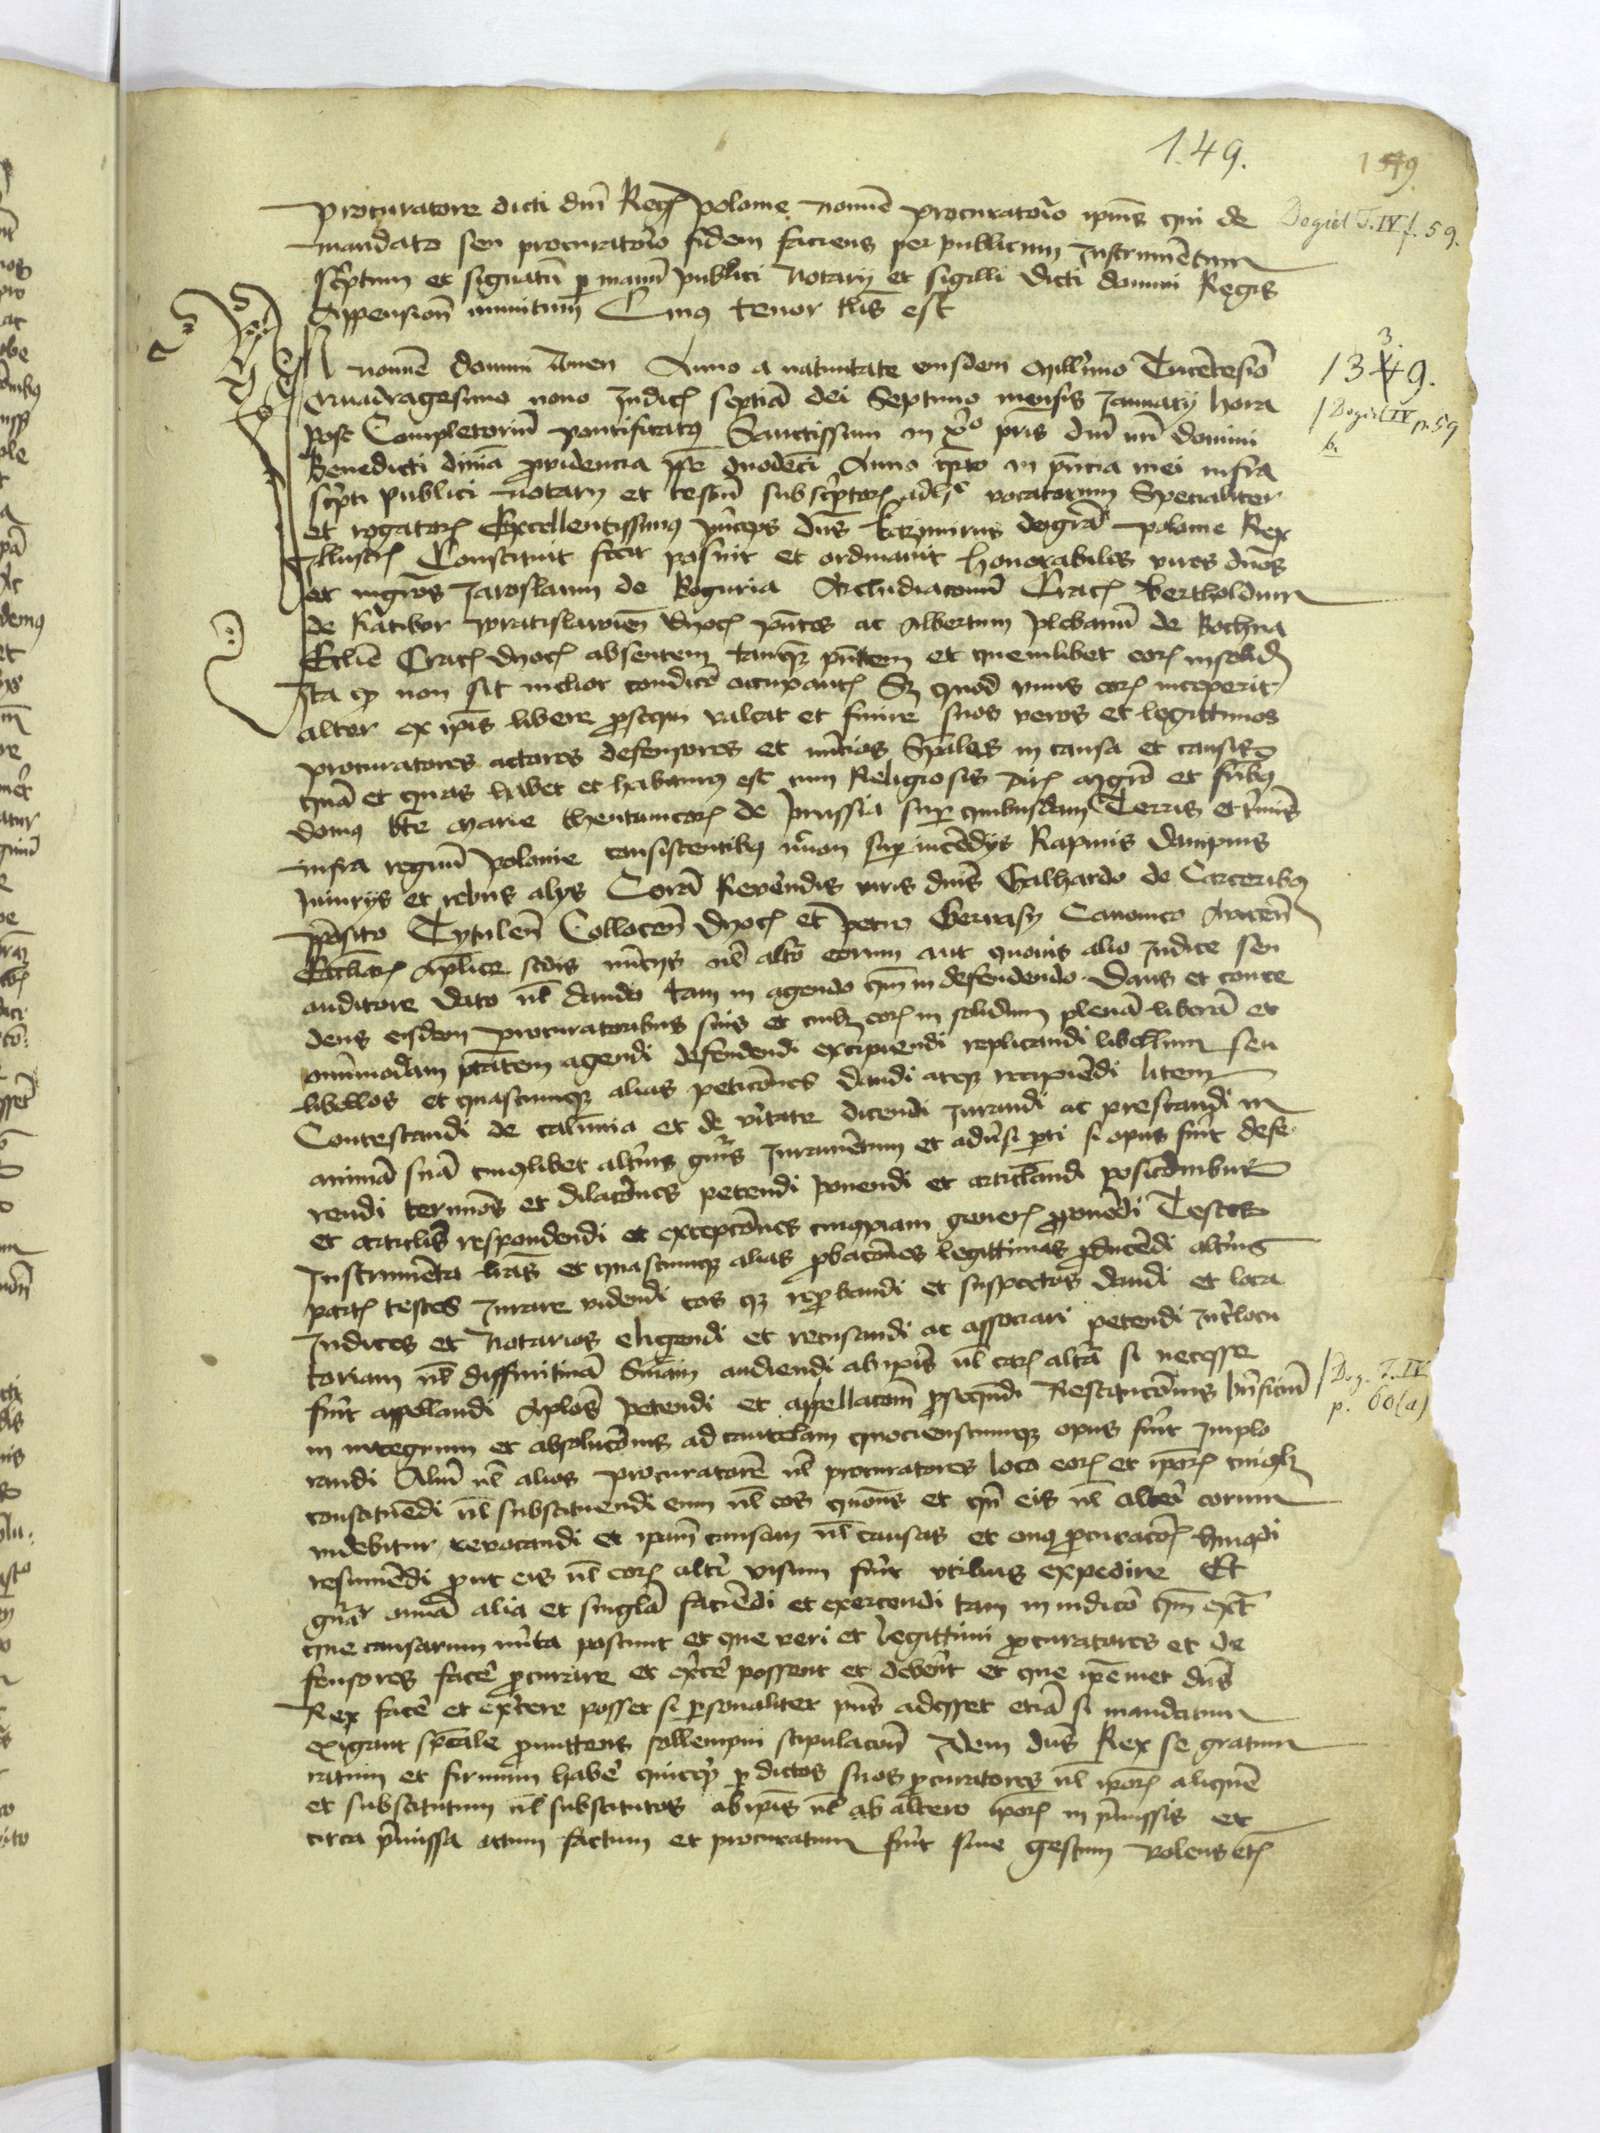 149.
159.
procuratore dicti dni Reg Polonie nomine procuratorio ipius qui de
Dogiel T. IV f. 59.
mandato seu procuratorio fidem faciens per publicum Instrumentum
scriptum et signatu p manu publici Notarij et sigilli dicti domini Regis
Appension munitum Cuius tenor talis est
In nomine domini Amen Anno a natiuitate eiusdem Millimo Tricetesio
3.
1349.
Quadragesimo nono Indict septia dei Septimo mensis January hora
Dogiel IV p. 59
b.
Post Completoriu pontificatus Sanctissimi in xpo pris dni nri domini
Benedicti diuia prouidencia ppe duodeci Anno qrto in pncia mei infra
scripti publici notarij et testiu subscriptor ad hec vocatorum Specialiter
et rogator Excellentissimus princeps dns kazimirus dei gra Polonie Rex
Illustr Constituit fecit posuit et ordinauit honorabiles viros dnos
et mgros Jaroslaum de Boguria Archidiaconu Crac Bertholdum
de Ratibor wratislauien dyoc pntes ac Albertum plebanu de Bochna
Ecclie Crac dyoc absentem tanq pntem et quemlibet eor insolid
Ita q non sit melior condicio occupant Sz quod vnus eor inceperit
alter ex ipis libere psequi valeat et finire suos veros et legittimos
procuratores actores defensores et nucios Spales in causa et causis
qua et quas habet et habiturus est cum Religiosis vir Mgro et frib
domus bte Marie theutunicor de prussia sup quibusdam Terris et tminis
infra regnu Polonie consistentibus necnon sup incendijs Rapinis dampnis
Iniurijs et rebus alijs Cora Reuerendis viris dnis Galhardo de Carceribus
pposito Tytulen Collocen dyoc et Petro Geruasij Canonico Anicien
Ecclar Aplice sedis nuncijs vel altero eorum aut quouis alio Iudice seu
auditore dato vel dando tam in agendo qm in defendendo Dans et conce
dens eisdem procuratoribus suis et cuilz eor in solidum plena libera et
omnimodam ptatem agendi defendendi excipiendi replicandi libellum seu
libellos et quascumq alias peticones dandi atq recipiendi litem
Contestandi de calumnia et de veritate dicendi Iurandi ac prestandi in
anima sua cuiuslibet alterius gnis Iuramentum et aduersi pti si opus fuit defe
rendi terminos et dilatones petendi ponendi et articlandi posicoinibus
et articlis respondendi et exceptones cuiuspiam gener pponedi Testes
Instrumenta lras et quascumq alias pbatones legittimas pducedi alterius
partis testes Iurare videndi eos q repbandi et suspectos dandi et loca
Iudices et Notarios eligendi et recusandi ac associari petendi Interlocu
toriam vel diffinitiua Sniam audiendi ab ipis vel ear altera si necesse
Dog. T. IV
p. 60 (a)
fuit appellandi Aplos petendi et appellacom psequendi Restitucionis bnficiu
in integrum et absolutionis ad cautelam quocienscumq opus fuit Implo
randi Aliu vel alios procuratore vel procuratores loco eor et ipor cuiuslz
constituedi vel substituendi eum vel eos quouis et qn eis vel alteri eorum
videbitur reuocandi et ipam causam vel causas et onus pcuratois huiusmodi
resumedi put eis vel eor alteri visum fuit vtilius expedire Et
gnalr omia alia et singla faciendi et exercendi tam in iudicio qm extra
que causarum merita poscunt et que veri et legittimi pcuratores et de
fensores face pcurare et exerce possent et deberet et que ipemet dns
Rex face et exercere posset si psonaliter pns adesset etia si mandatum
exigant spciale promittens sollempni stipulacion Idem dns Rex se gratum
ratum et firmum habe quicq p dictos suos pcuratores vel ipor aliquem
et substitutum vel substitutos ab ipis vel ab altero ipor in premissis et
circa pmissa actum factum et procuratum fuit siue gestum volens etc